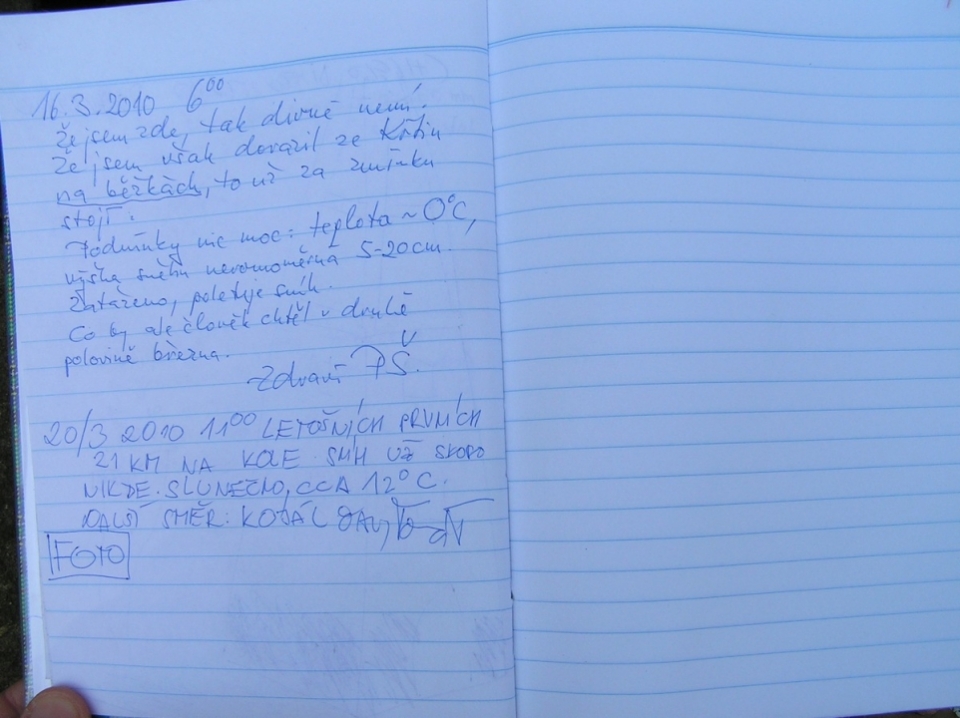 16.3.2010 6⁰⁰
Že jsem zde, tak divné není.
Že jsem však dorazil ze Křtin
na běžkách, to už za zmínku
stojí.
Podmínky nic moc: teplota ~ 0°C,
výška sněhu nerovnoměrná 5-20cm.
Zataženo, poletuje sníh.
Co by ale člověk chtěl v druhé
polovině března.
Zdraví PŠ.
20/3 2010 11⁰⁰ LETOŠNÍCH PRVNÍCH
21 KM NA KOLE SNÍH UŽ SKORO
NIKDE. SLUNEČNO, CCA 12°C.
DALŠÍ SMĚR: KOJÁL
FOTO